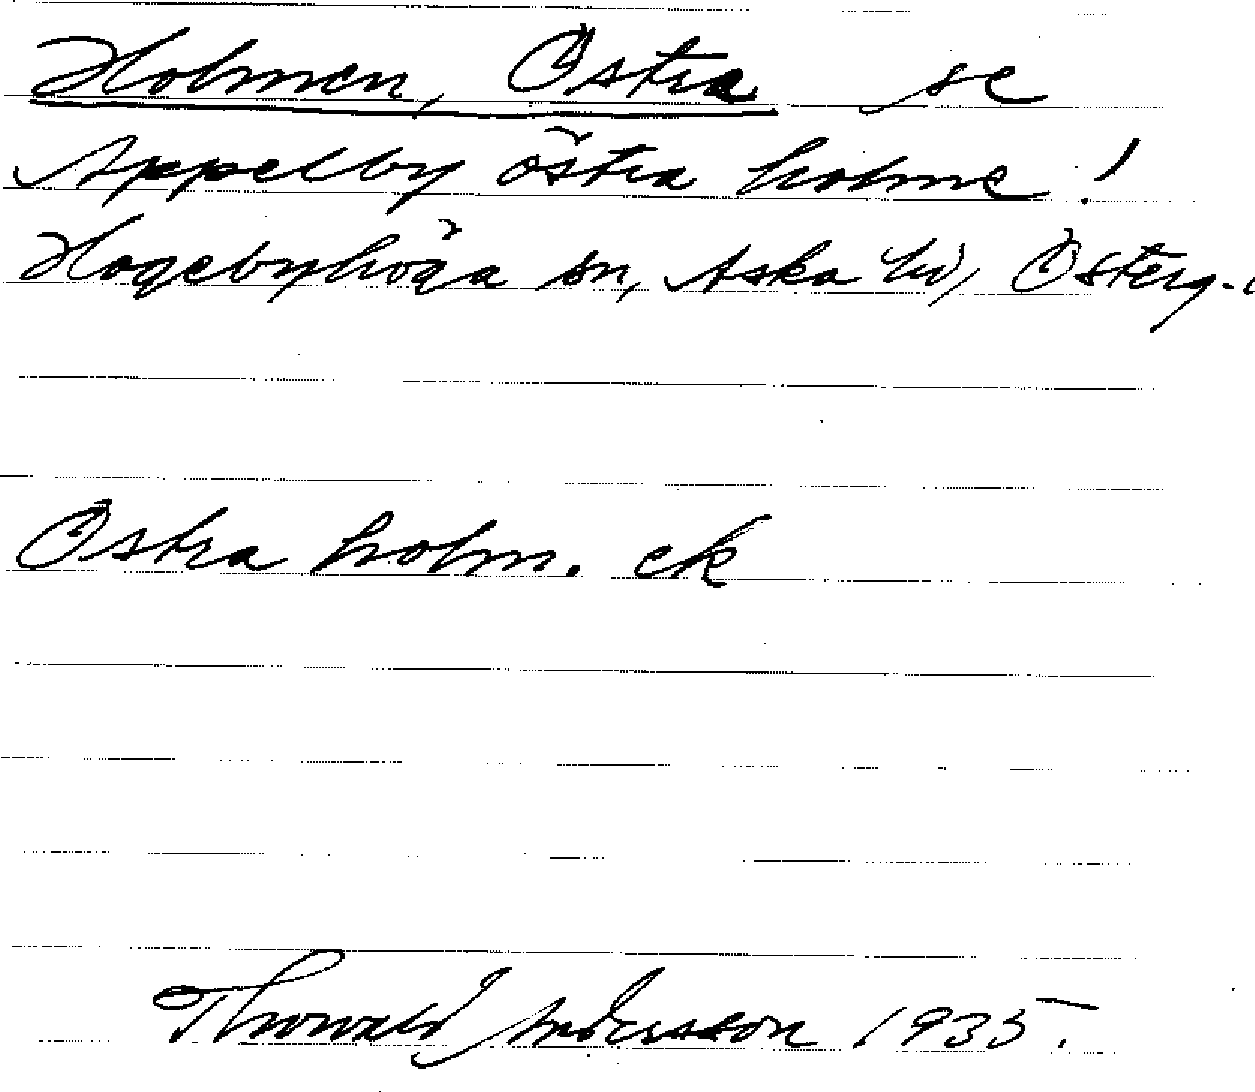 Holmen, Östra se
Appelby östra holme!
Hogebyhöga sn, Aska hd, Österg.
Östra holm. ek
Thorvald Andersson 1935.